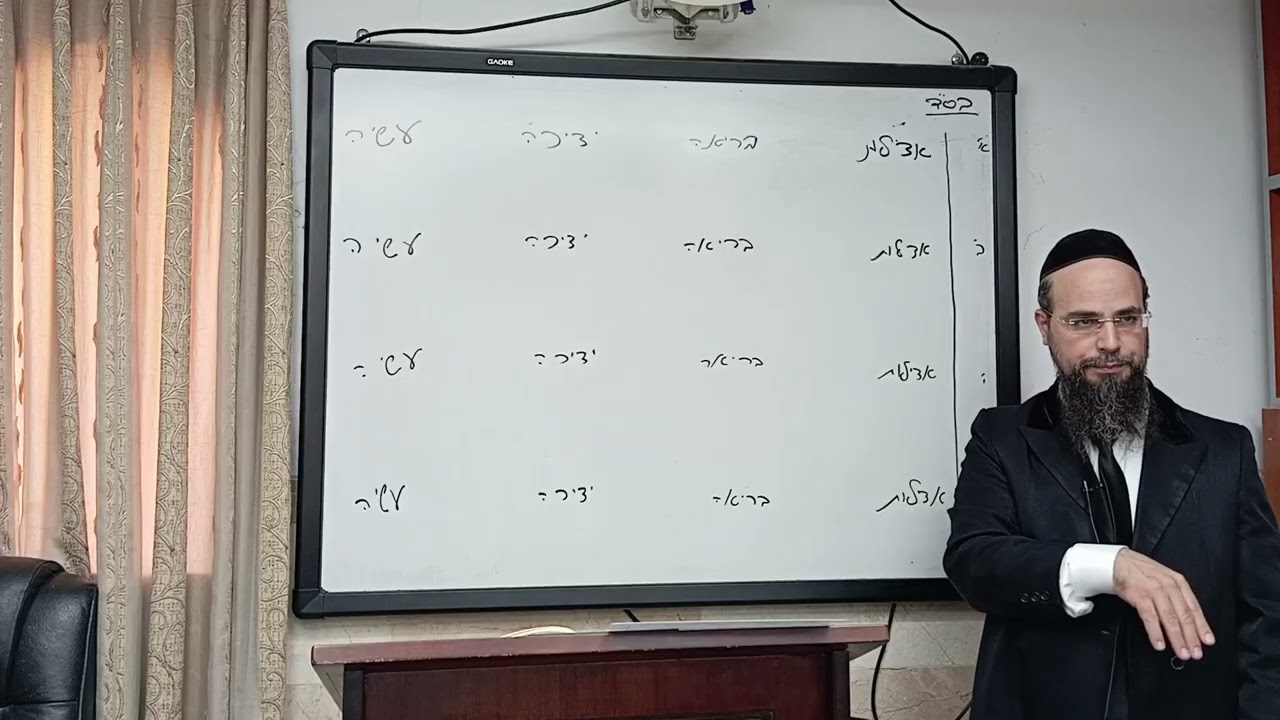 GAOKE
בס"ד
א' אצילות בריאה יצירה עשיה
ב' אצילות בריאה יצירה עשיה
אצילות בריאה יצירה עשיה
אצילות בריאה יצירה עשיה